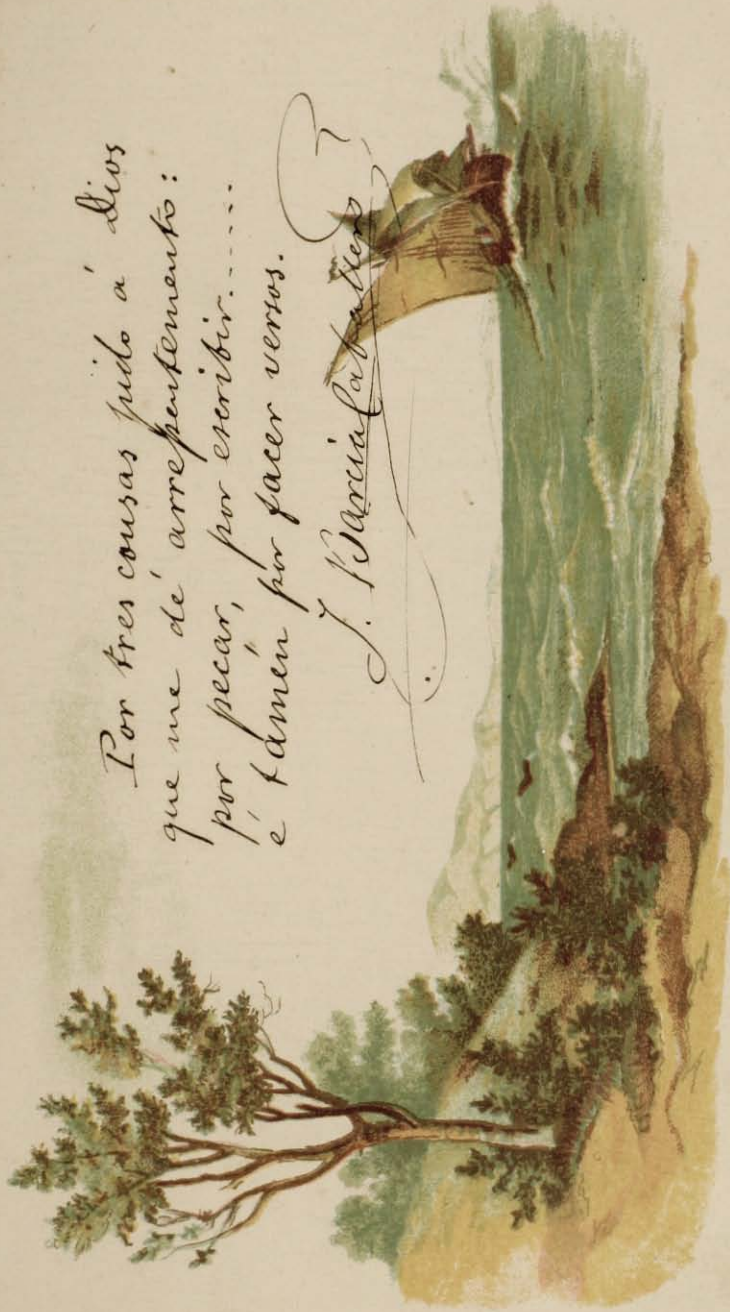 Por tres cousas pido á Dios
que me dé arrepentemento:
por pecar, por escribir.....
é tamén por facer versos.
J. Barcia Caballero